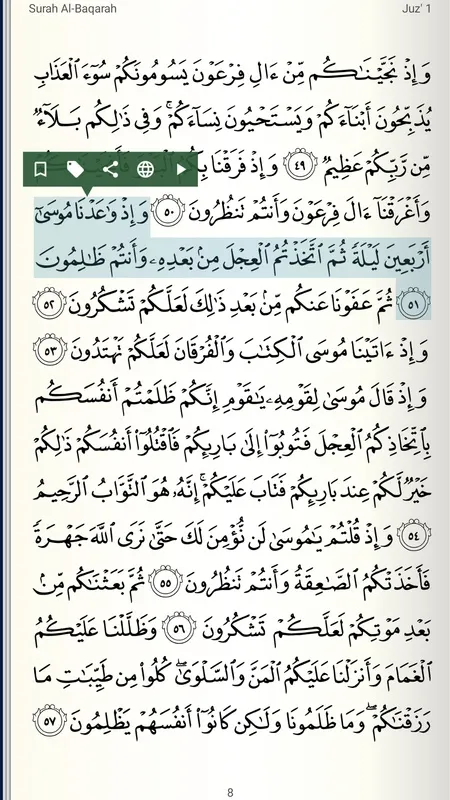 Surah Al-Baqarah Juz' 1
وَإِذْ نَجَّيْنَـٰكُم مِّنْ ءَالِ فِرْعَوْنَ يَسُومُونَكُمْ سُوٓءَ ٱلْعَذَابِ
يُذَبِّحُونَ أَبْنَآءَكُمْ وَيَسْتَحْيُونَ نِسَآءَكُمْ ۚ وَفِى ذَٰلِكُم بَلَآءٌ
مِّن رَّبِّكُمْ عَظِيمٌ ٤٩ وَإِذْ فَرَقْنَا بِكُمُ
وَأَغْرَقْنَآ ءَالَ فِرْعَوْنَ وَأَنتُمْ تَنظُرُونَ ٥٠ وَإِذْ وَٰعَدْنَا مُوسَىٰٓ
أَرْبَعِينَ لَيْلَةً ثُمَّ ٱتَّخَذْتُمُ ٱلْعِجْلَ مِنۢ بَعْدِهِۦ وَأَنتُمْ ظَـٰلِمُونَ
٥١ ثُمَّ عَفَوْنَا عَنكُم مِّنۢ بَعْدِ ذَٰلِكَ لَعَلَّكُمْ تَشْكُرُونَ ٥٢
وَإِذْ ءَاتَيْنَا مُوسَى ٱلْكِتَـٰبَ وَٱلْفُرْقَانَ لَعَلَّكُمْ تَهْتَدُونَ ٥٣
وَإِذْ قَالَ مُوسَىٰ لِقَوْمِهِۦ يَـٰقَوْمِ إِنَّكُمْ ظَلَمْتُمْ أَنفُسَكُم
بِٱتِّخَاذِكُمُ ٱلْعِجْلَ فَتُوبُوٓا۟ إِلَىٰ بَارِئِكُمْ فَٱقْتُلُوٓا۟ أَنفُسَكُمْ ذَٰلِكُمْ
خَيْرٌ لَّكُمْ عِندَ بَارِئِكُمْ فَتَابَ عَلَيْكُمْ ۚ إِنَّهُۥ هُوَ ٱلتَّوَّابُ ٱلرَّحِيمُ
٥٤ وَإِذْ قُلْتُمْ يَـٰمُوسَىٰ لَن نُّؤْمِنَ لَكَ حَتَّىٰ نَرَى ٱللَّهَ جَهْرَةً
فَأَخَذَتْكُمُ ٱلصَّـٰعِقَةُ وَأَنتُمْ تَنظُرُونَ ٥٥ ثُمَّ بَعَثْنَـٰكُم مِّنۢ
بَعْدِ مَوْتِكُمْ لَعَلَّكُمْ تَشْكُرُونَ ٥٦ وَظَلَّلْنَا عَلَيْكُمُ
ٱلْغَمَامَ وَأَنزَلْنَا عَلَيْكُمُ ٱلْمَنَّ وَٱلسَّلْوَىٰ ۖ كُلُوا۟ مِن طَيِّبَـٰتِ مَا
رَزَقْنَـٰكُمْ ۖ وَمَا ظَلَمُونَا وَلَـٰكِن كَانُوٓا۟ أَنفُسَهُمْ يَظْلِمُونَ ٥٧
8